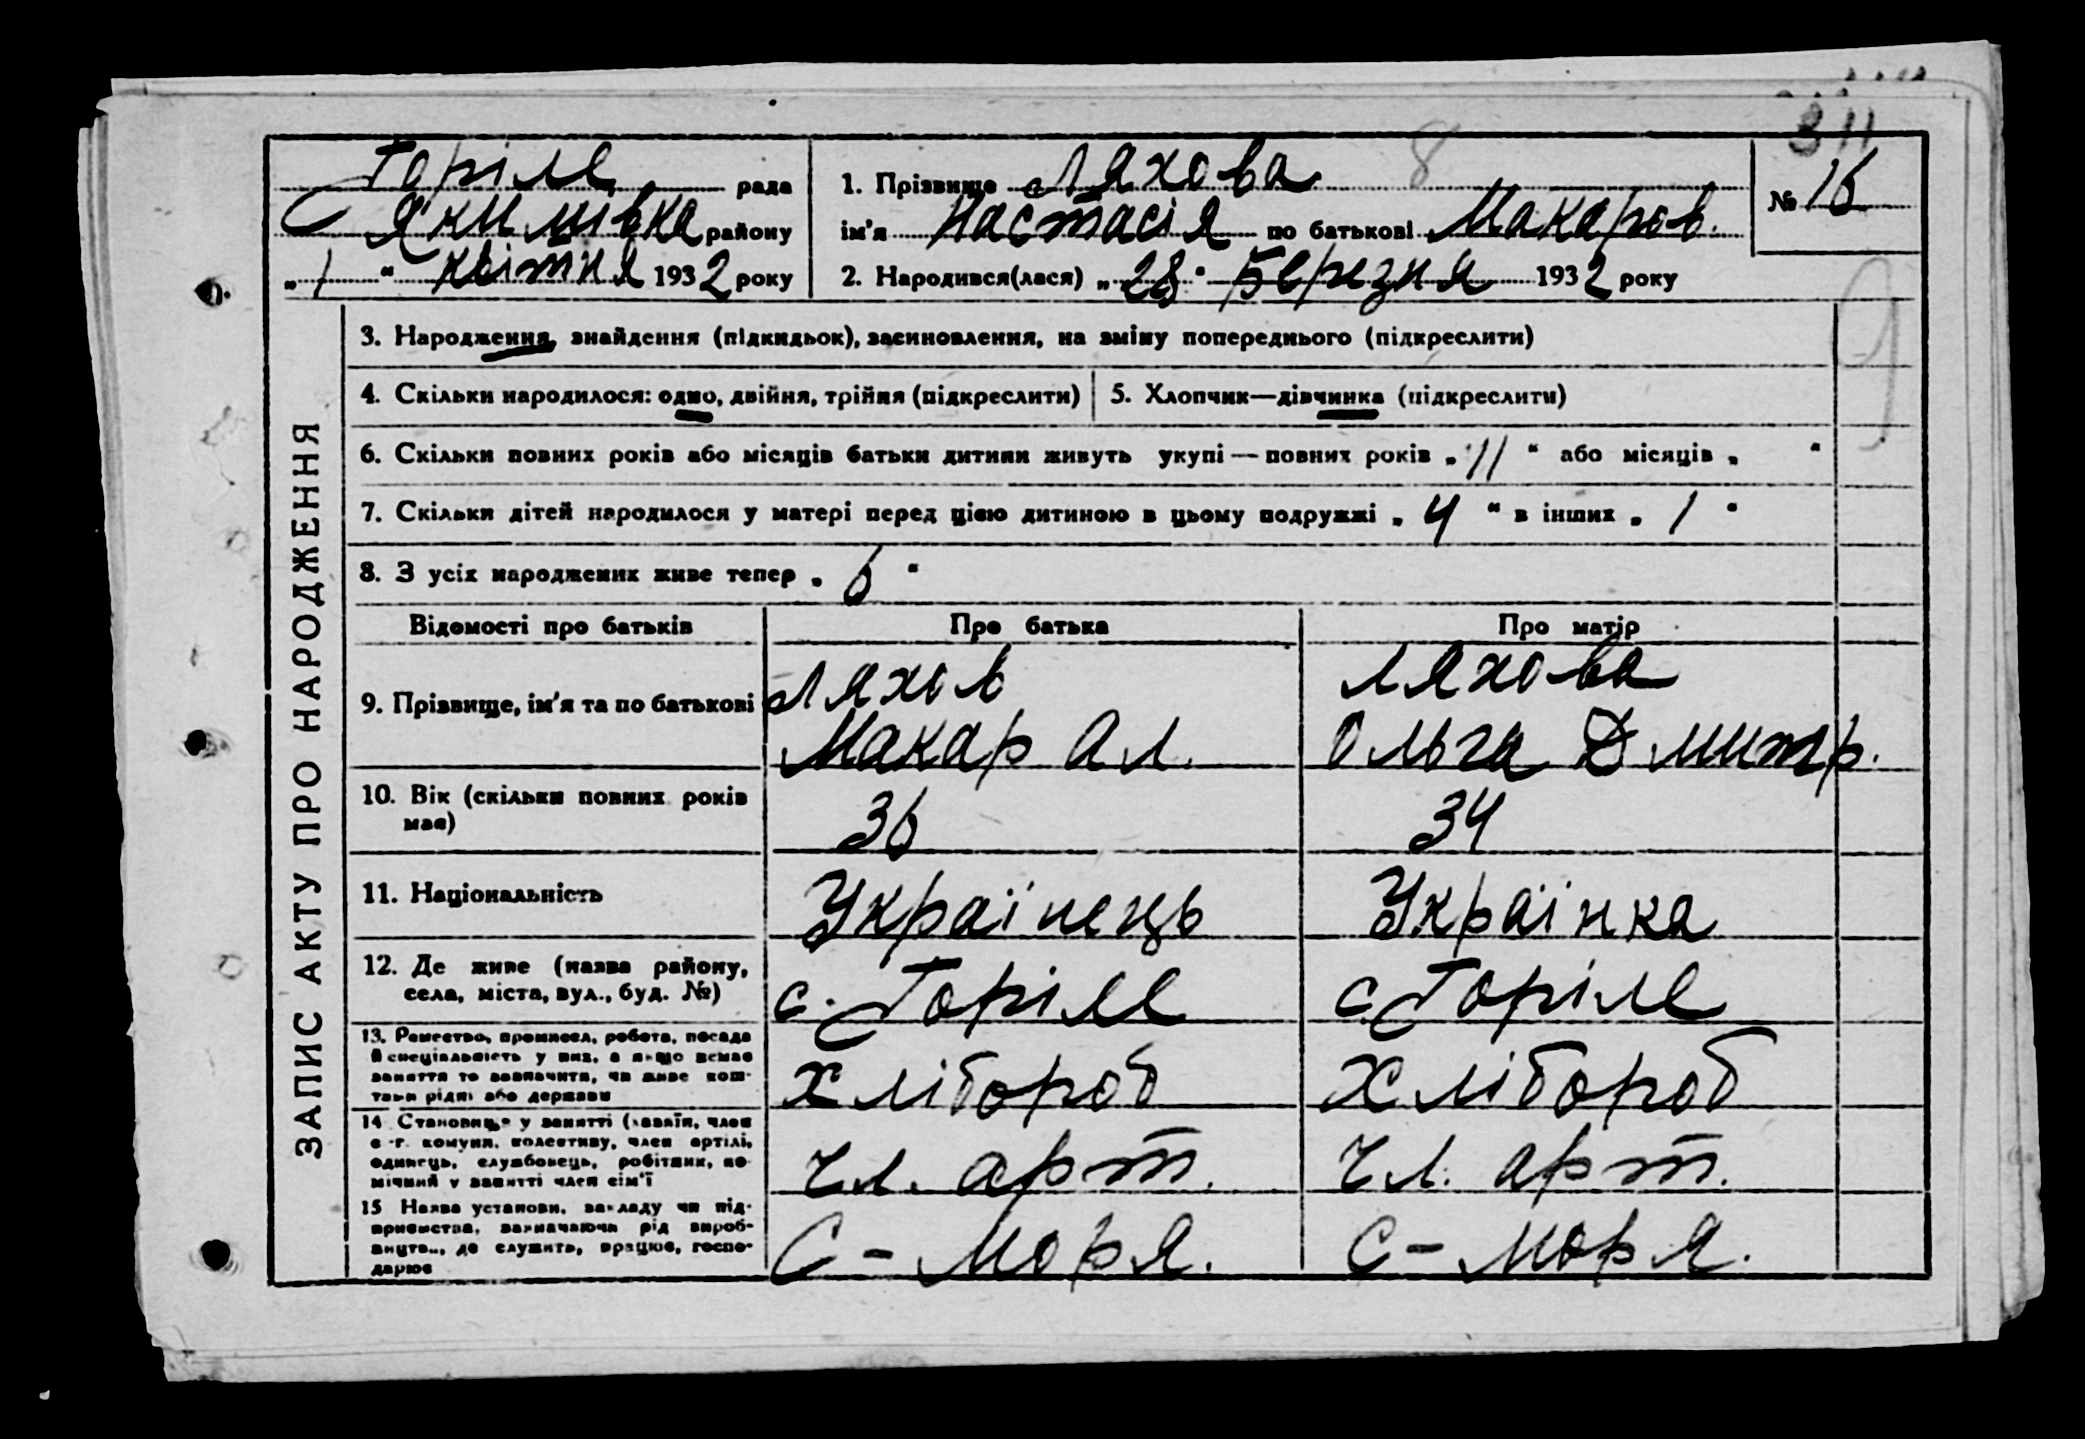 311
Горіле рада
Якимівка району
„ 1 “ квітня 1932 року
1. Прізвище Ляхова 8
ім'я Настасія по батькові Макаров.
2. Народився(лася) „ 28 “ Березня 1932 року
№ 16
9
ЗАПИС АКТУ ПРО НАРОДЖЕННЯ
3. Народження, знайдення (підкидьок), засиновлення, на зміну попереднього (підкреслити)
4. Скільки народилося: одно, двійня, трійня (підкреслити)
5. Хлопчик—дівчинка (підкреслити)
6. Скільки повних років або місяців батьки дитини живуть укупі — повних років „ 11 “ або місяців „ “
7. Скільки дітей народилося у матері перед цією дитиною в цьому подружжі „ 4 “ в інших „ 1 “
8. З усіх народжених живе тепер „ 6 “
Відомості про батьків Про батька Про матір
9. Прізвище, ім'я та по батькові
Ляхов
Макар Ал.
Ляхова
Ольга Дмитр.
10. Вік (скільки повних років
має)
36
34
11. Національність
Українець
Українка
12. Де живе (назва району,
села, міста, вул., буд. №)
с. Горіле
с. Горіле
13. Ремество, промисел, робота, посада
й спеціальність у них, а якщо немає
заняття то зазначити, чи живе кош-
тами рідні або держави
Хлібороб
Хлібороб
14 Становище у занятті (хазяїн, член
с.-г. комуни, колективу, член артілі,
одинець, службовець, робітник, по-
мічний у занятті член сім'ї
Чл. арт.
Чл. арт.
15 Назва установи, закладу чи під-
приємства, зазначаючи рід вироб-
ництва, де служить, працює, госпо-
дарює
С - Моря.
С - Моря.